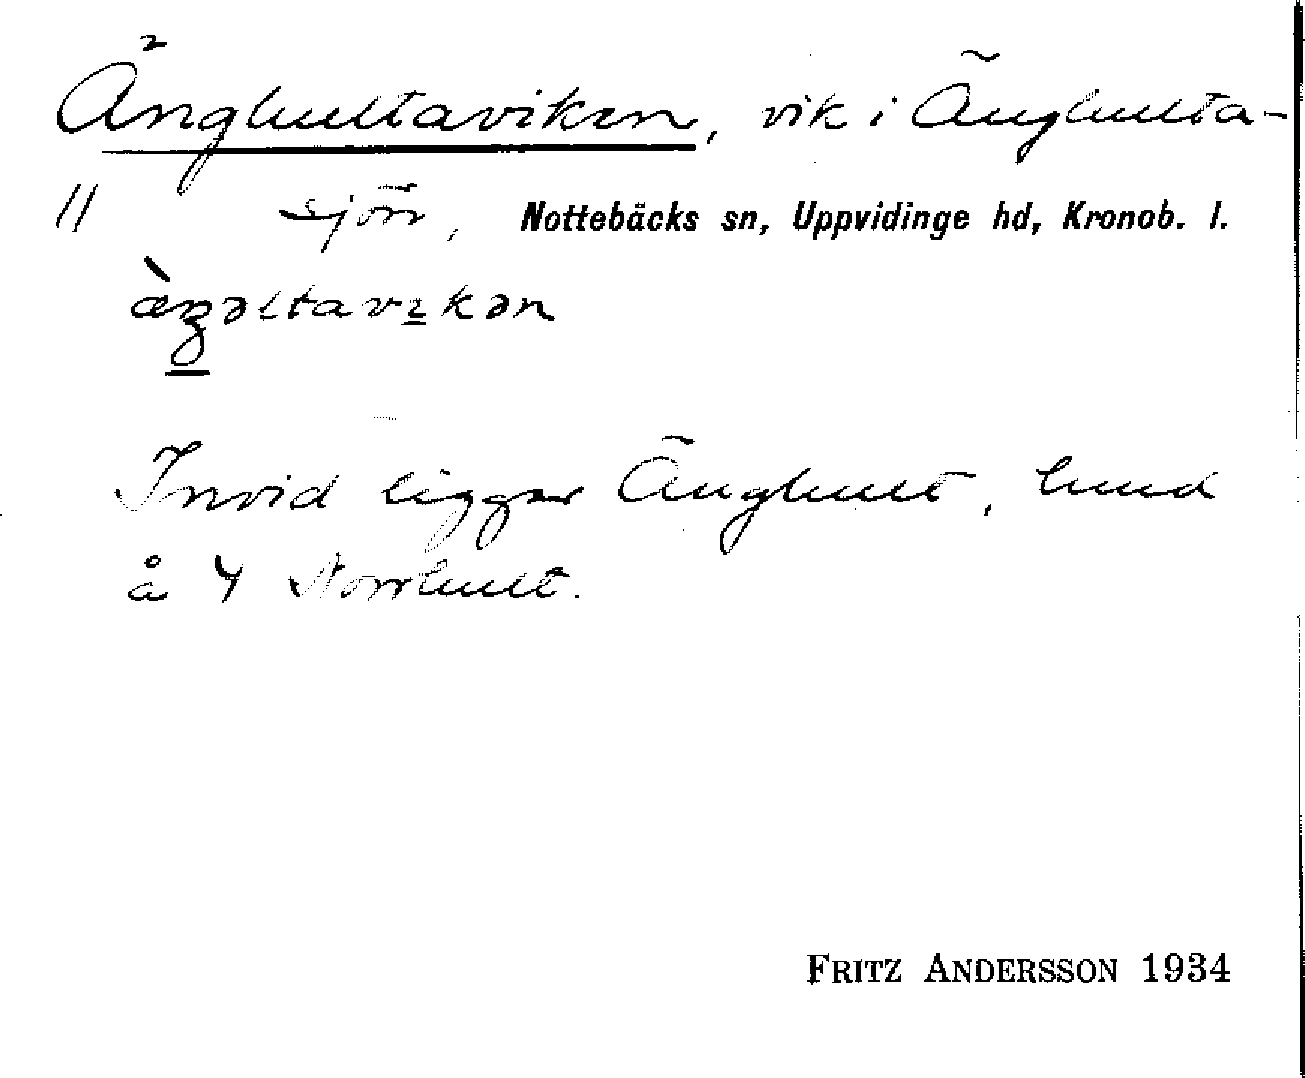 Änghultaviken, vik i Änghulta-
// sjön, Nottebäcks sn, Uppvidinge hd, Kronob. l.
Invid ligger Änghult, hmd
å 4 Norrhult.
FRITZ ANDERSSON 1934